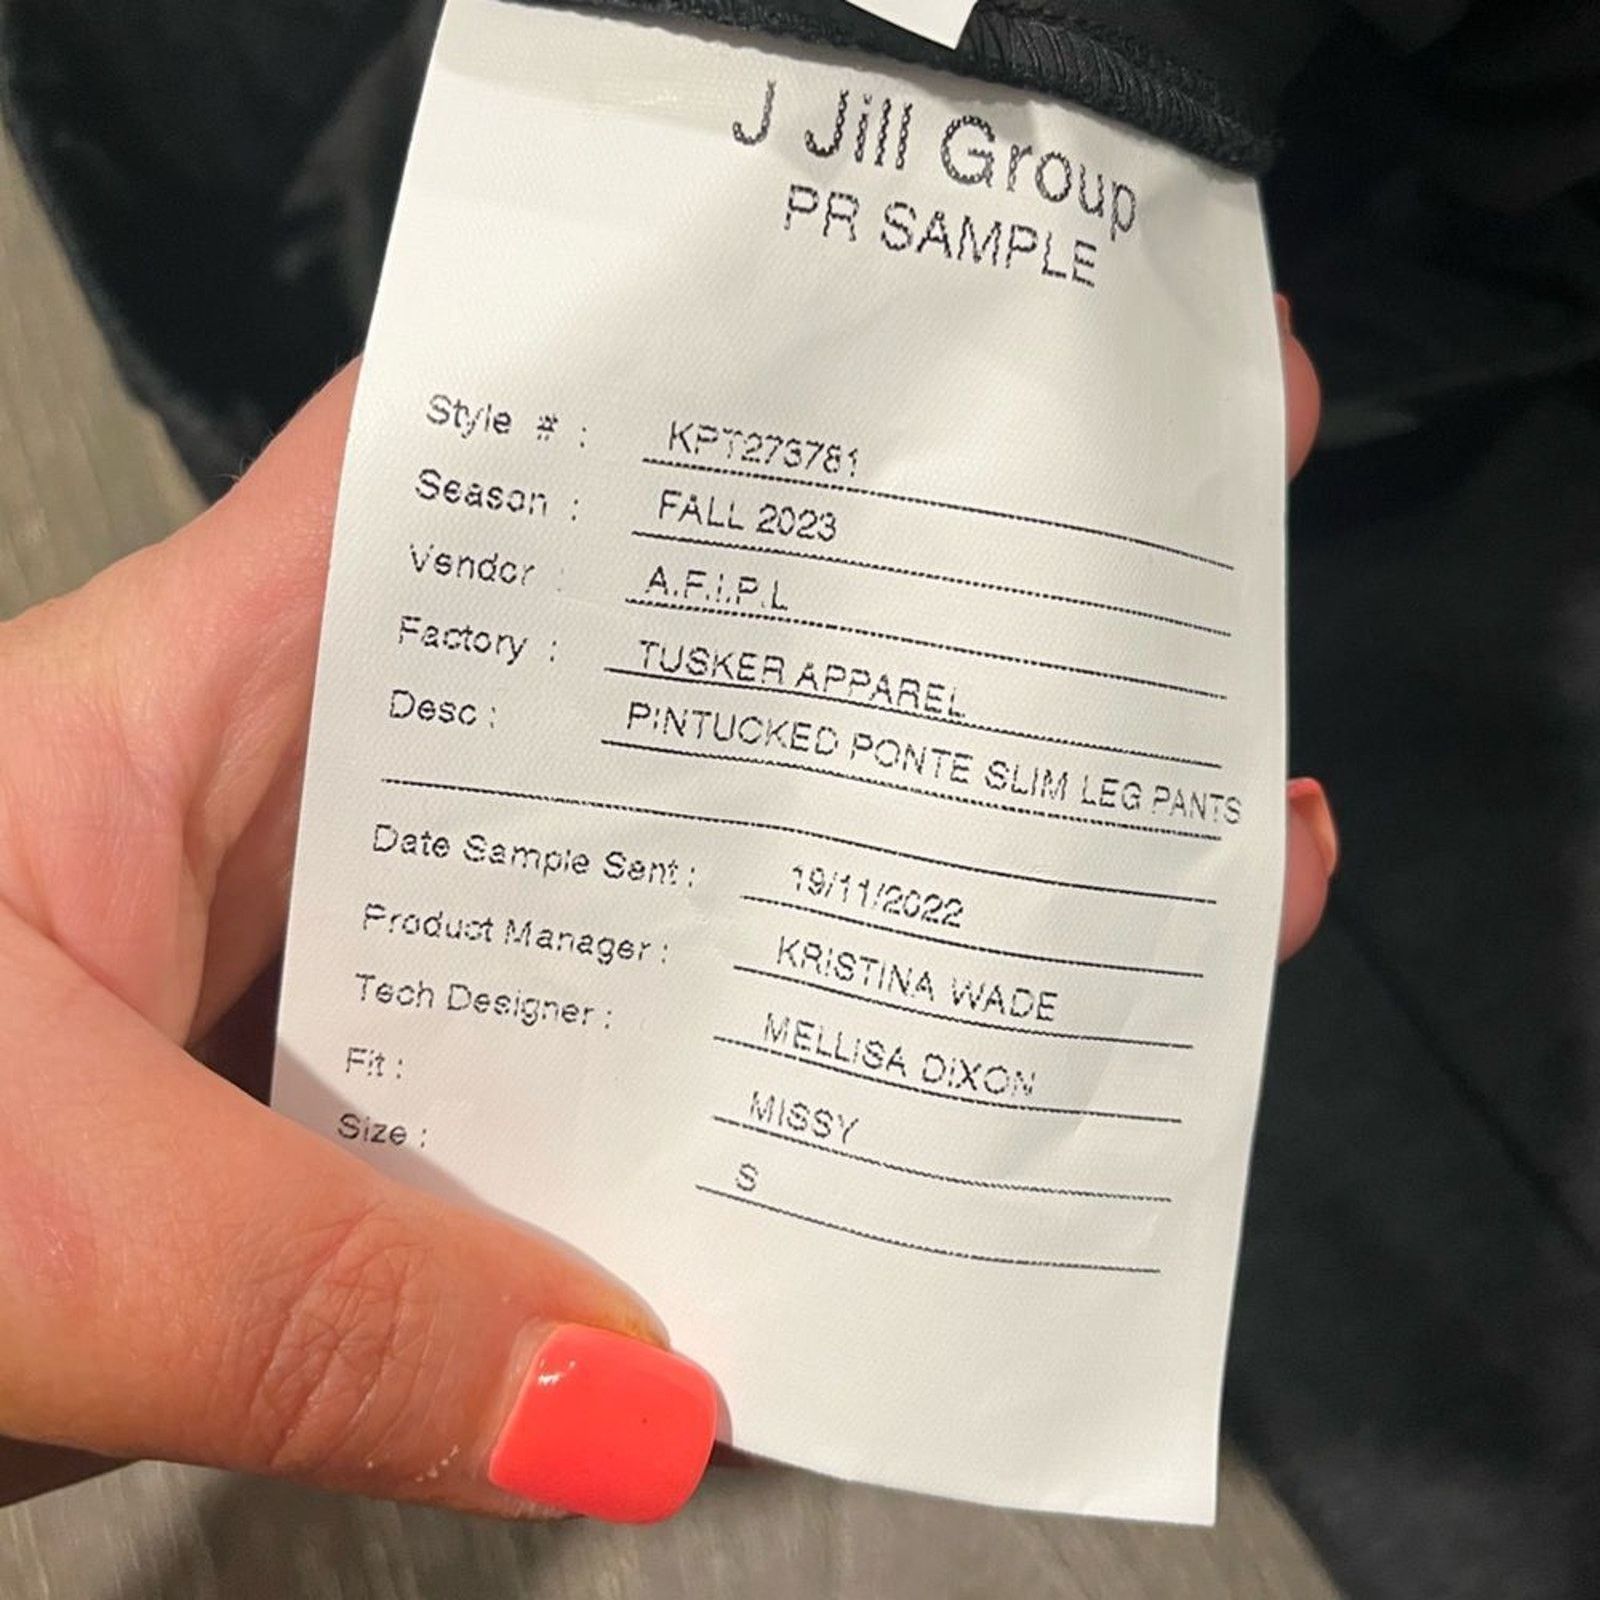 J Jill Group
PR SAMPLE
Style # : KPT273781
Season : FALL 2023
Vendor : A.F.I.P.L
Factory : TUSKER APPAREL
Desc : PINTUCKED PONTE SLIM LEG PANTS
Date Sample Sent : 19/11/2022
Product Manager : KRISTINA WADE
Tech Designer : MELLISA DIXON
Fit : MISSY
Size : S